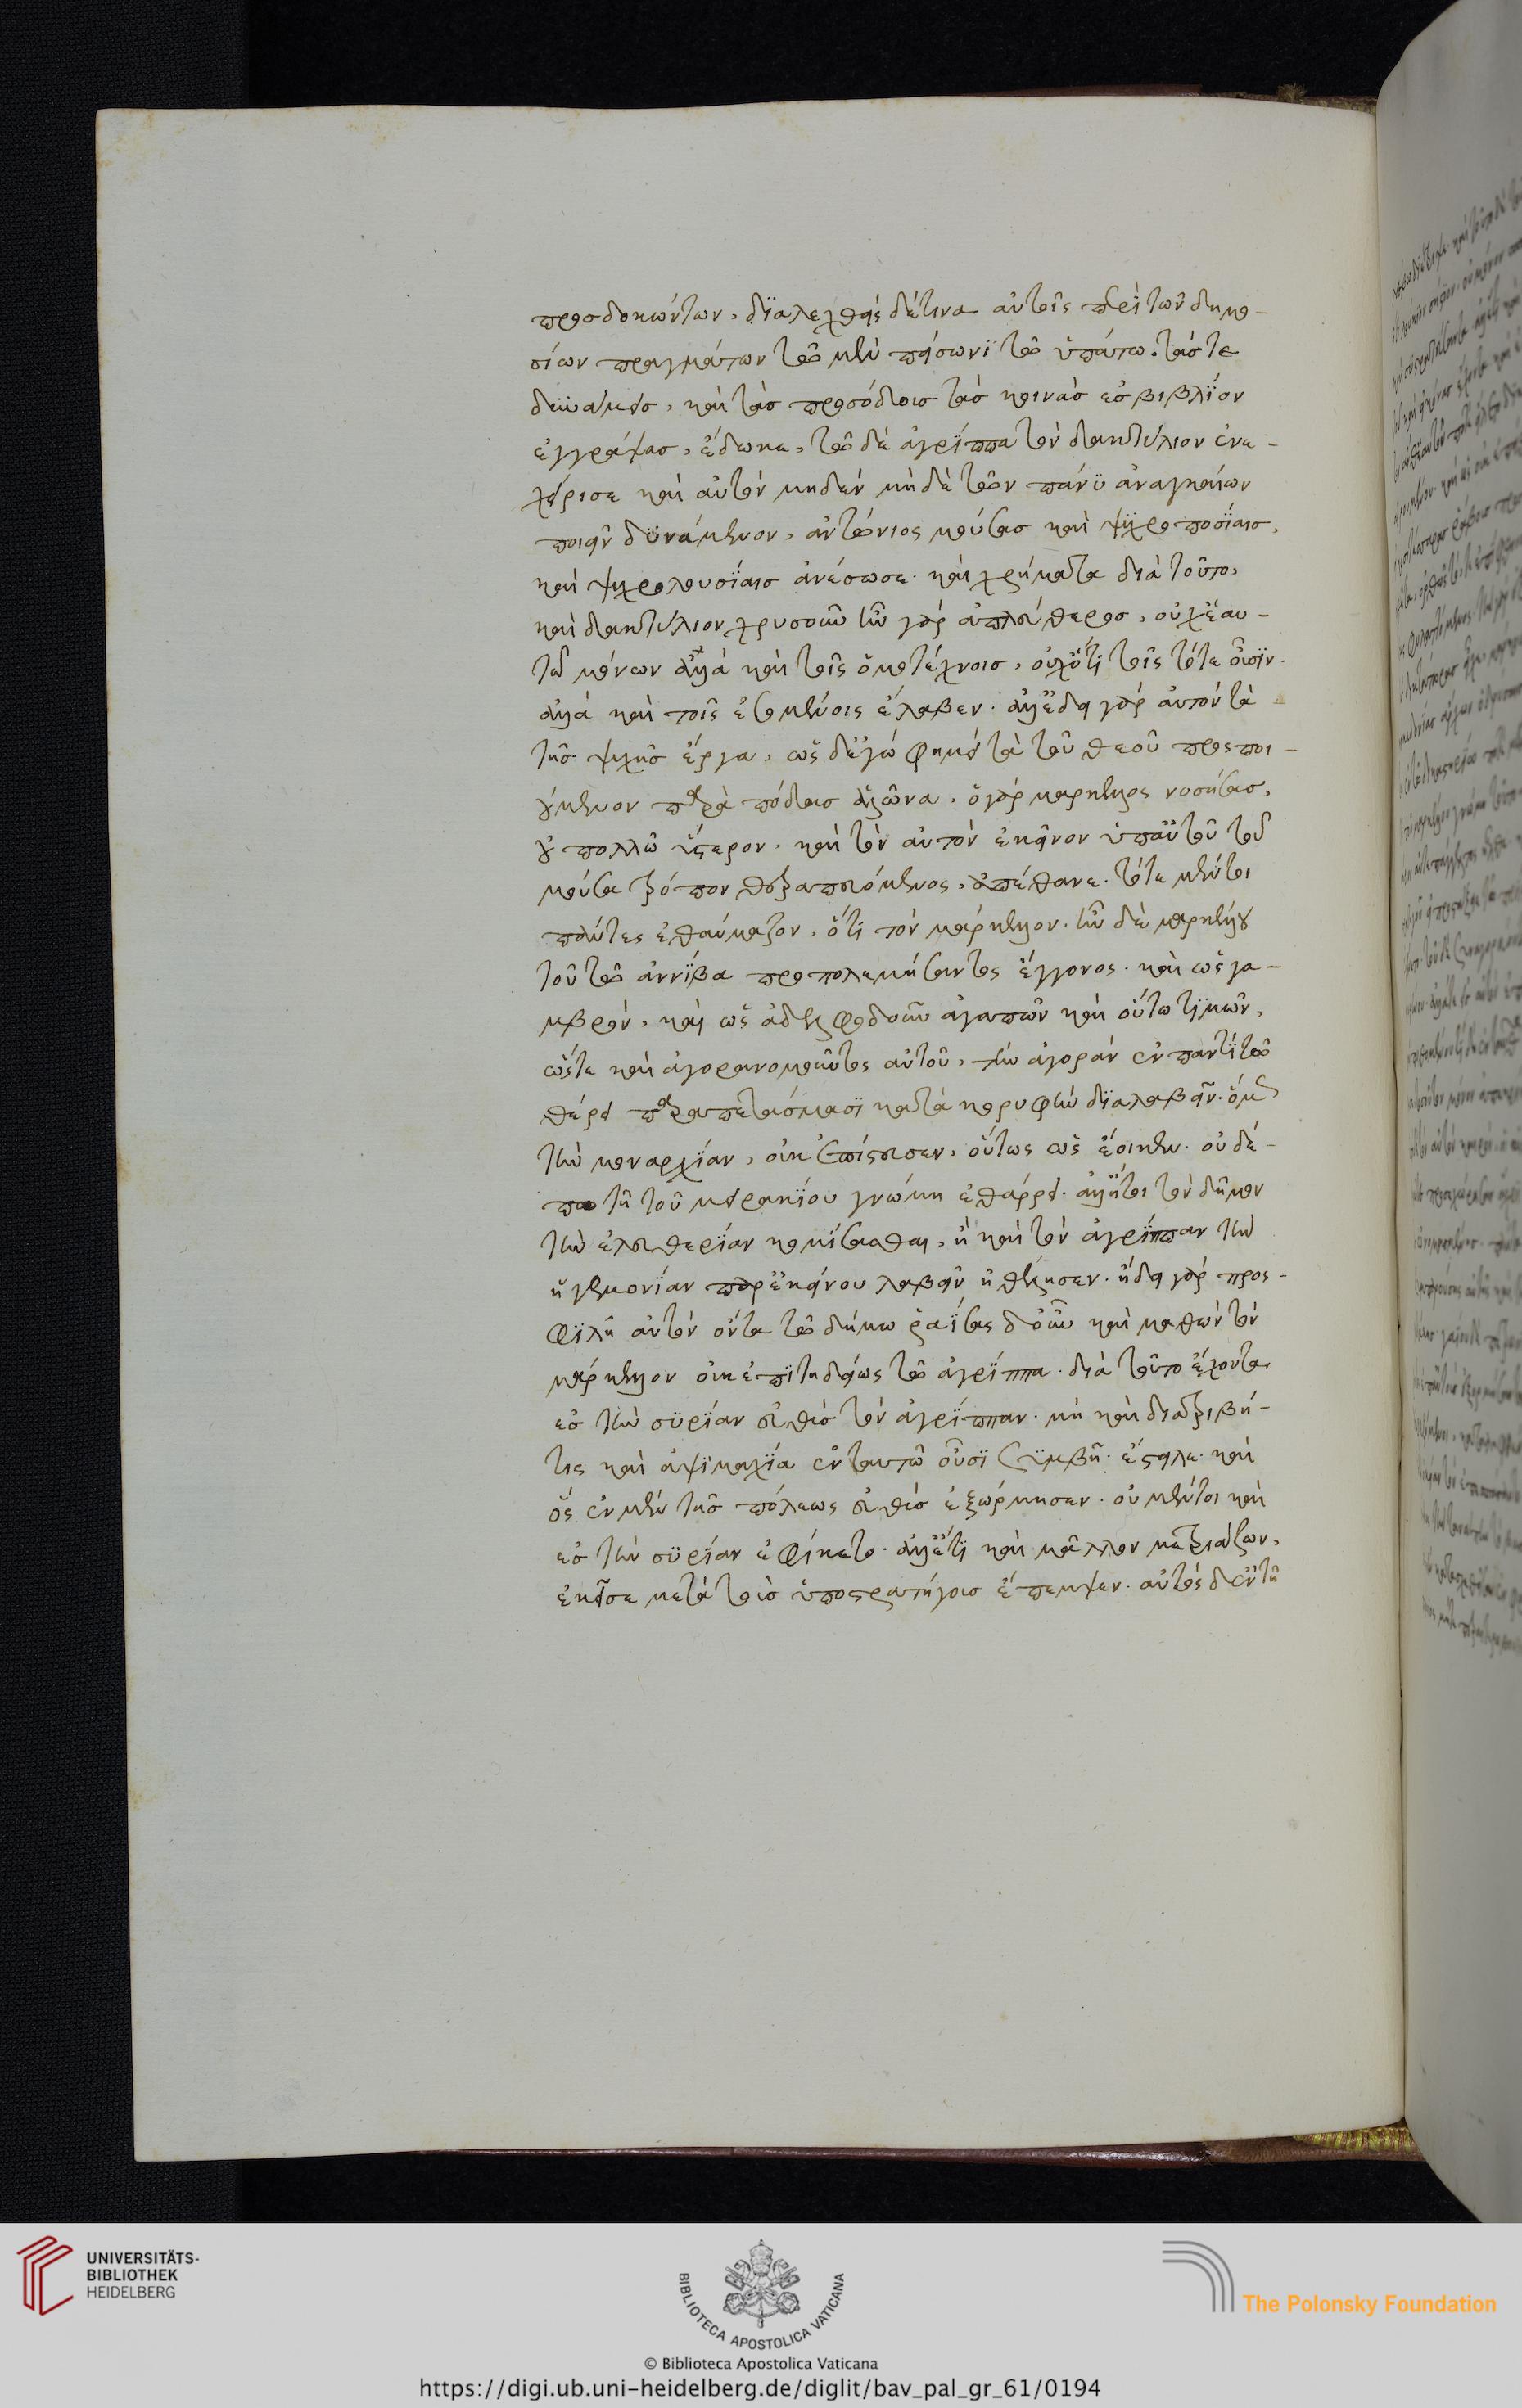 προσδοκώντων, διαλεχθεὶς δέ τινα αὐτοῖς περὶ τῶν δημο-
σίων πραγμάτων τῶ μὲν πείσωνι τῶ ὑπάτω. τάς τε
δυνάμεις, καὶ τὰς προσόδους τὰς κοινὰς ἐς βιβλίον
ἐγγράψας, ἔδωκε, τῶ δὲ ἀγρίππα τὸν δακτύλιον ἐνε-
χείρισε καὶ αὐτὸν μηδὲν μὴ δὲ τῶν πάνυ ἀναγκαίων
ποιεῖν δυνάμενον, ἀντώνιος μούσας καὶ ψυχροποσίαις,
καὶ ψυχρολουσίαις ἀνέσωσε. καὶ χρήματα διὰ τοῦτο,
καὶ δακτύλιον χρυσοῦν ἦν γὰρ ἀπελεύθερος, οὐχ ἑαυ-
τῶ μόνων ἀλλὰ καὶ τοῖς ὁμοτέχνοις, οὐχ ὅτι τοῖς τότε οὖσιν.
ἀλλὰ καὶ τοῖς ἐσομένοις ἔλαβεν. ἀλλ' ἔδει γὰρ αὐτὸν τὰ
τῆς ψυχῆς ἔργα, ὡς δ' ἐγώ φημι τὰ τοῦ θεοῦ προσποι-
ούμενον παρὰ πόδας ἁλῶνα. ὁ γὰρ μάρκελλος νοσήσας,
οὐ πολλῶ ὕστερον. καὶ τὸν αὐτὸν ἐκεῖνον ὑπ' αὐτοῦ τοῦ
μούσα τρόπον θεραπευόμενος, ἀπέθανε. τότε μέντοι
πάντες ἐθαύμαζον, ὅτι τὸν μάρκελλον. ἦν δὲ μαρκέλλου
τοῦ τῶ ἀννίβα προπολεμήσαντος ἔγγονος. καὶ ὡς γα-
μβρὸν, καὶ ὡς ἀδελφιδοῦν ἀγαπῶν καὶ οὕτω τιμῶν,
ὥστε καὶ ἀγορανομοῦντος αὐτοῦ, τὴν ἀγορὰν ἐν παντὶ τῶ
θέρει παραπετάσμασι κατὰ κορυφὴν διαλαβεῖν. ὅμως
τὴν μοναρχίαν, οὐκ ἐπίστευσεν, οὕτως ὡς ἔοικεν. οὐδέ-
πω τῆ τοῦ μειρακίου γνώμη ἐθάρρει. ἀλλ' ἤτοι τὸν δῆμον
τὴν ἐλευθερίαν κομίσασθαι, ἢ καὶ τὸν ἀγρίππαν τὴν
ἡγεμονίαν παρ' ἐκείνου λαβεῖν ἠθέλησεν. ἤδει γὰρ προσ-
φιλῆ αὐτὸν ὄντα τῶ δήμω ῥαΐσας δ' οὖν καὶ μαθὼν τὸν
μάρκελλον οὐκ ἐπιτηδείως τῶ ἀγρίππα. διὰ τοῦτο ἔχοντα,
ἐς τὴν συρίαν εὐθὺς τὸν ἀγρίππαν. μὴ καὶ διατριβή-
τις καὶ ἁψιμαχία ἐν ταυτῶ οὖσι συμβῆ. ἔστειλε. καὶ
ὃς ἐν μὲν τῆς πόλεως εὐθὺς ἐξώρμησεν. οὐ μέντοι καὶ
ἐς τὴν συρίαν ἐφίκετο. ἀλλ' ἔτι καὶ μᾶλλον μετριάζων,
ἐκεῖσε μετὰ τοὺς ὑποστρατήγους ἔπεμψεν. αὐτὸς δ' ἐν τῆ
UNIVERSITÄTS-
BIBLIOTHEK
HEIDELBERG
BIBLIOTECA APOSTOLICA VATICANA
© Biblioteca Apostolica Vaticana
The Polonsky Foundation
https://digi.ub.uni-heidelberg.de/diglit/bav_pal_gr_61/0194